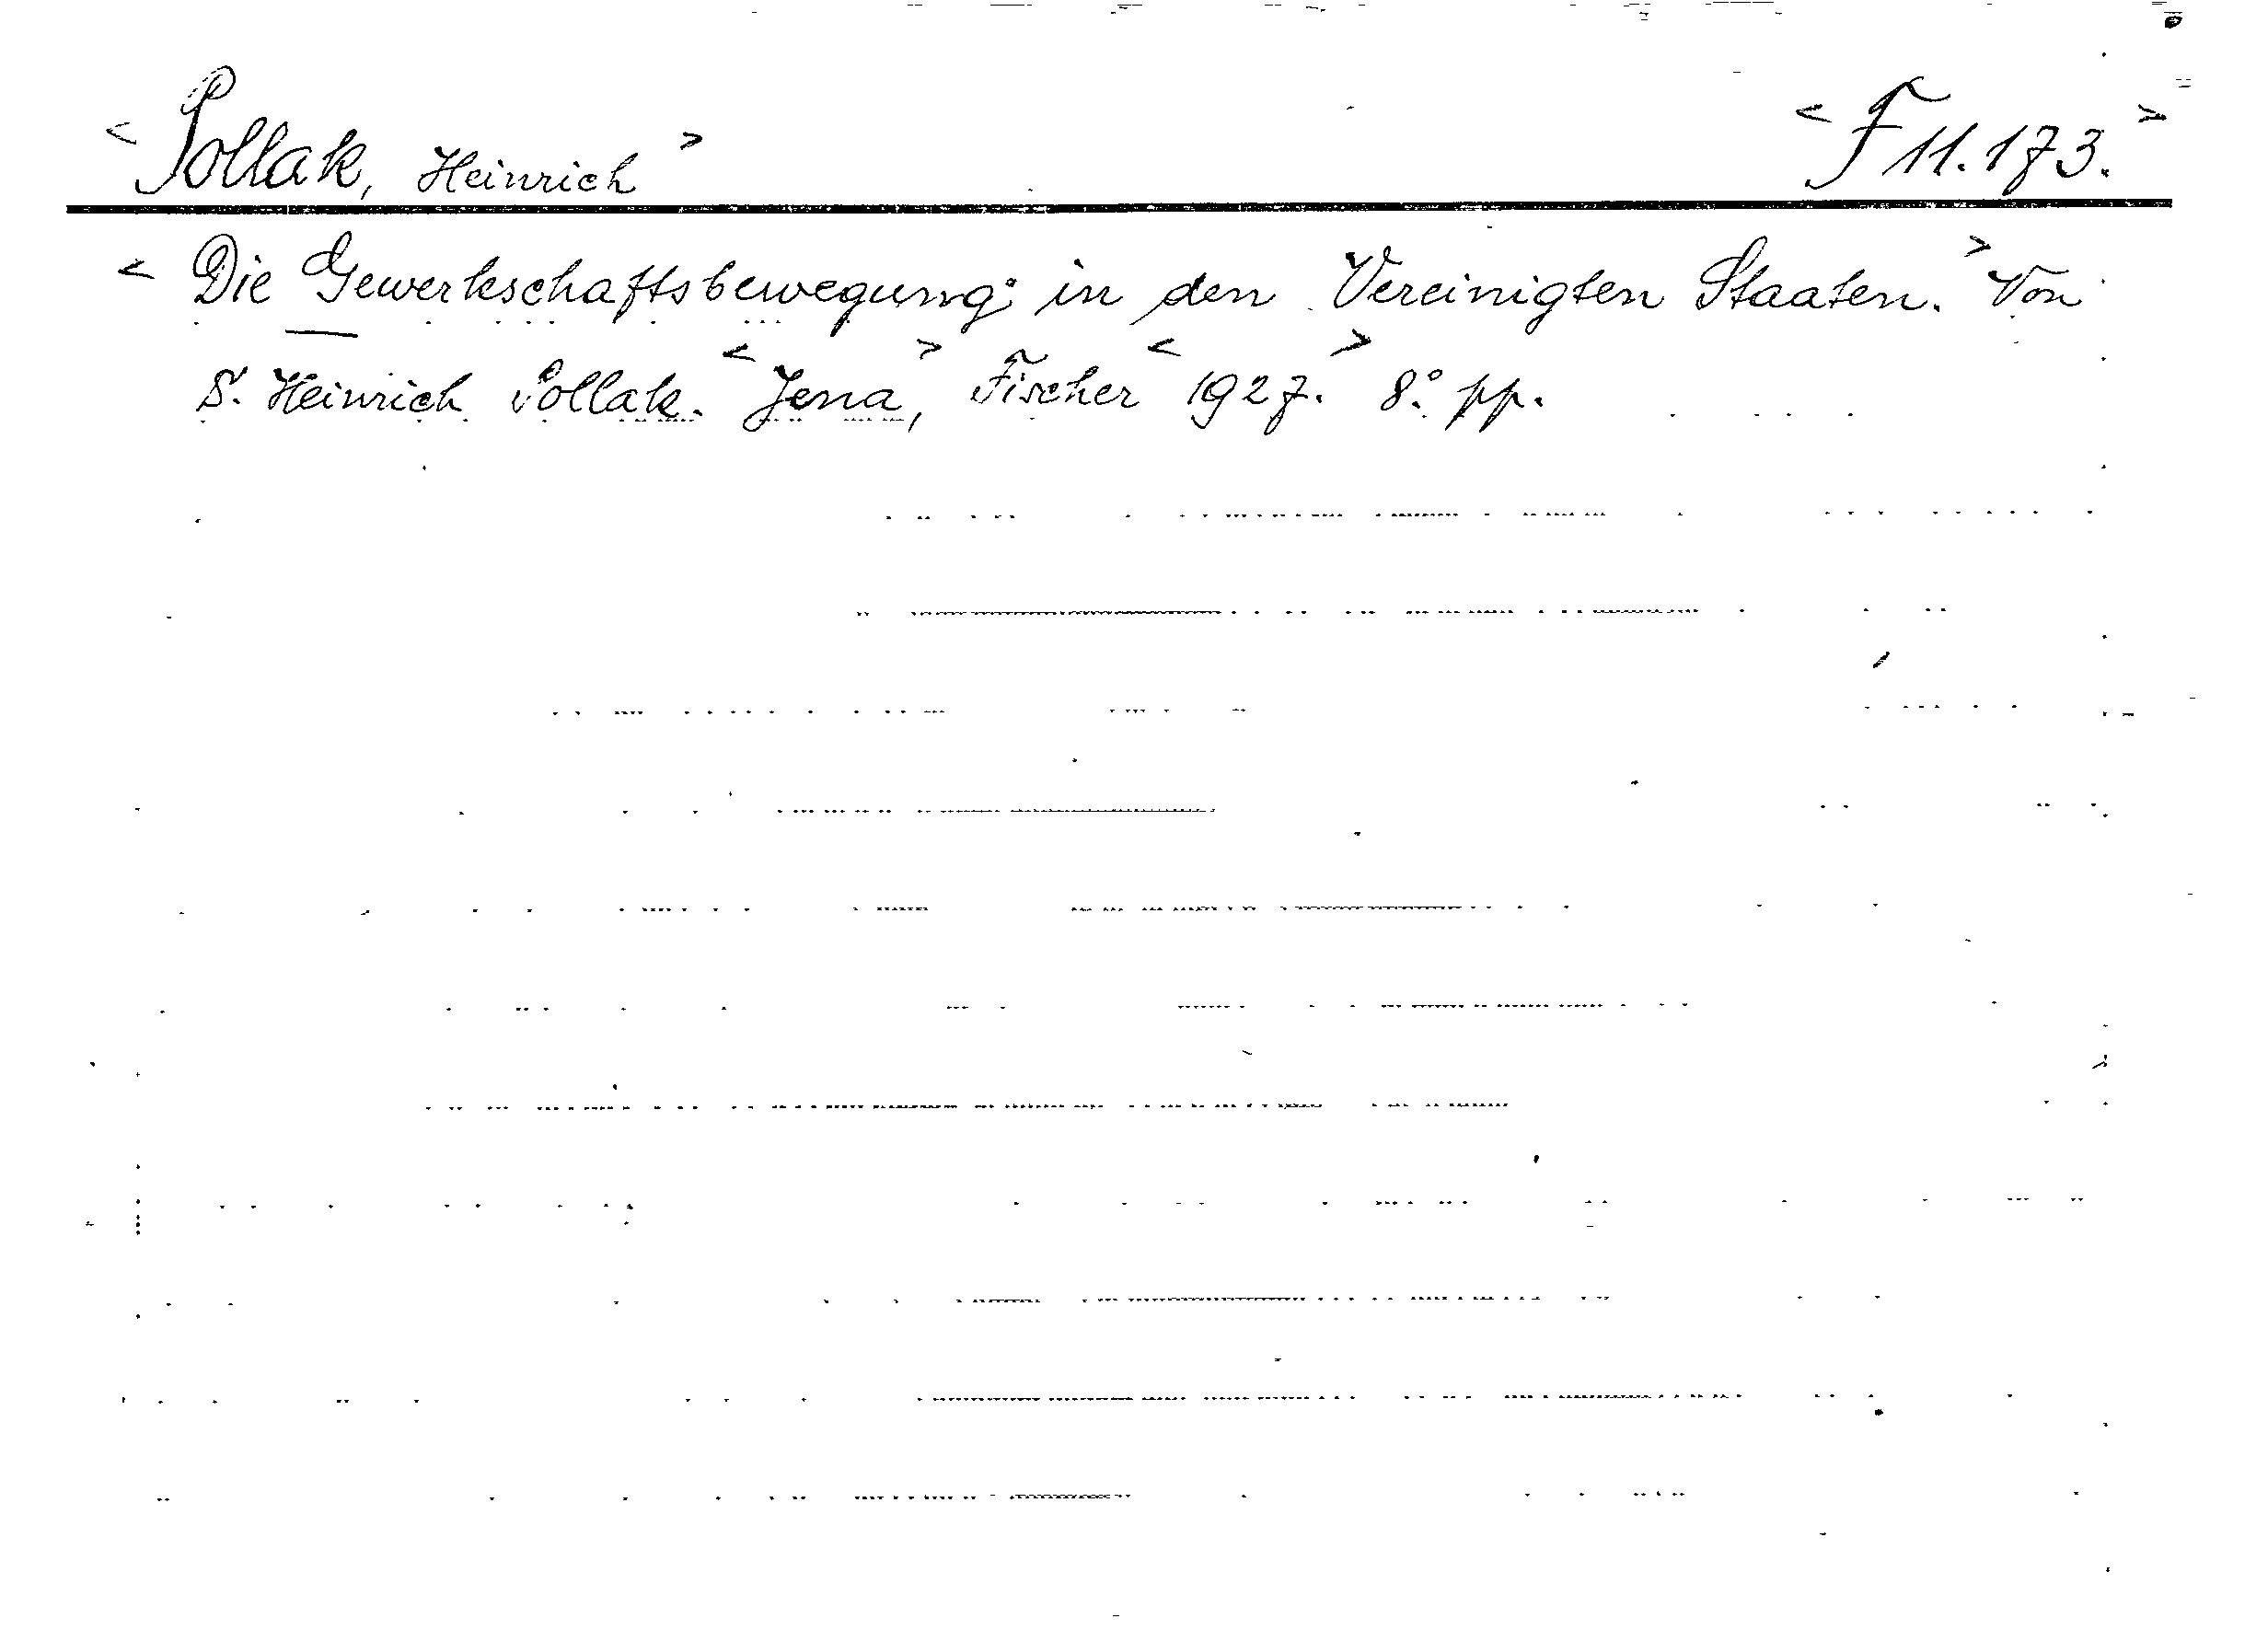 < Pollak, Heinrich > < F 11.173. >
< Die Gewerkschaftsbewegung in den Vereinigten Staaten. > Von
S. Heinrich Pollak. < Jena, > Fischer < 1927. > 8.° pp.